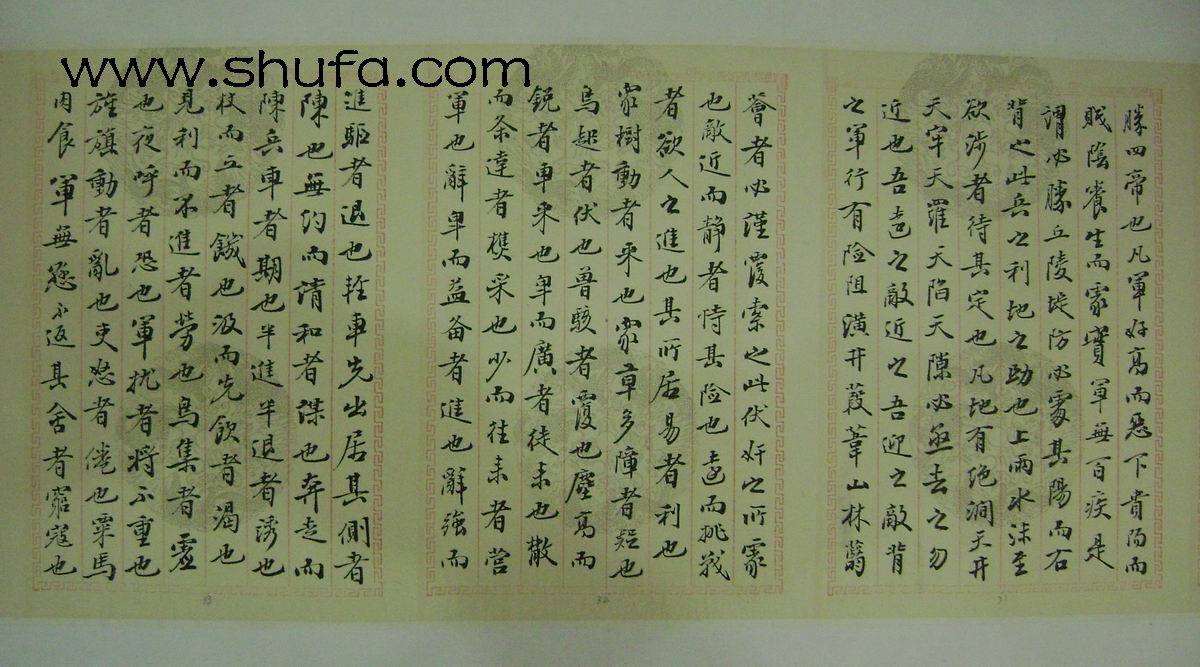 www.shufa.com
勝四帝也凡軍好高而惡下貴阳而
賤陰養生而處實軍無百疾是
謂必勝丘陵堤防必處其陽而右
背之此兵之利地之助也上雨水沫至
欲涉者待其定也凡地有绝澗天井
天牢天羅天陷天隙必亟去之勿
近也吾遠之敵近之吾迎之敵背
之軍行有险阻潢井葭葦山林翳
31
薈者必謹覆索之此伏奸之所處
也敵近而静者恃其险也遠而挑戰
者欲人之進也其所居易者利也
衆樹動者来也衆草多障者疑也
鳥起者伏也獸駭者覆也塵高而
銳者車来也卑而廣者徒来也散
而条達者樵采也少而往来者營
軍也辭卑而益备者進也辭強而
32
進驅者退也輕車先出居其側者
陳也無约而請和者謀也奔走而
陳兵車者期也半進半退者誘也
杖而立者饑也汲而先飲者渴也
見利而不進者勞也鳥集者虛
也夜呼者恐也軍扰者将不重也
旌旗動者亂也吏怒者倦也粟馬
肉食軍無懸不返其舍者窮寇也